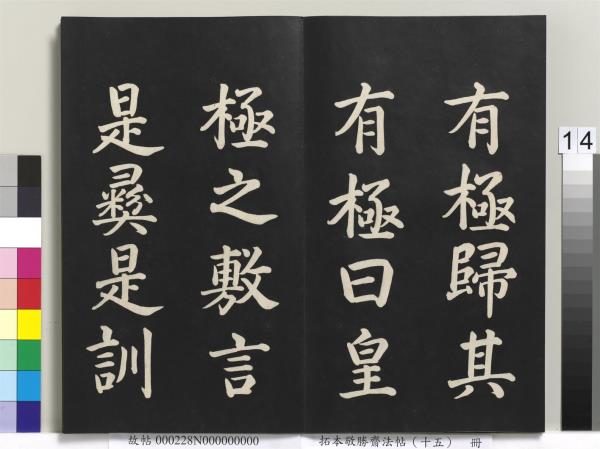 有極歸其
有極曰皇
極之敷言
是彝是訓
14
故帖 000228N000000000
拓本敬勝齋法帖(十五) 冊